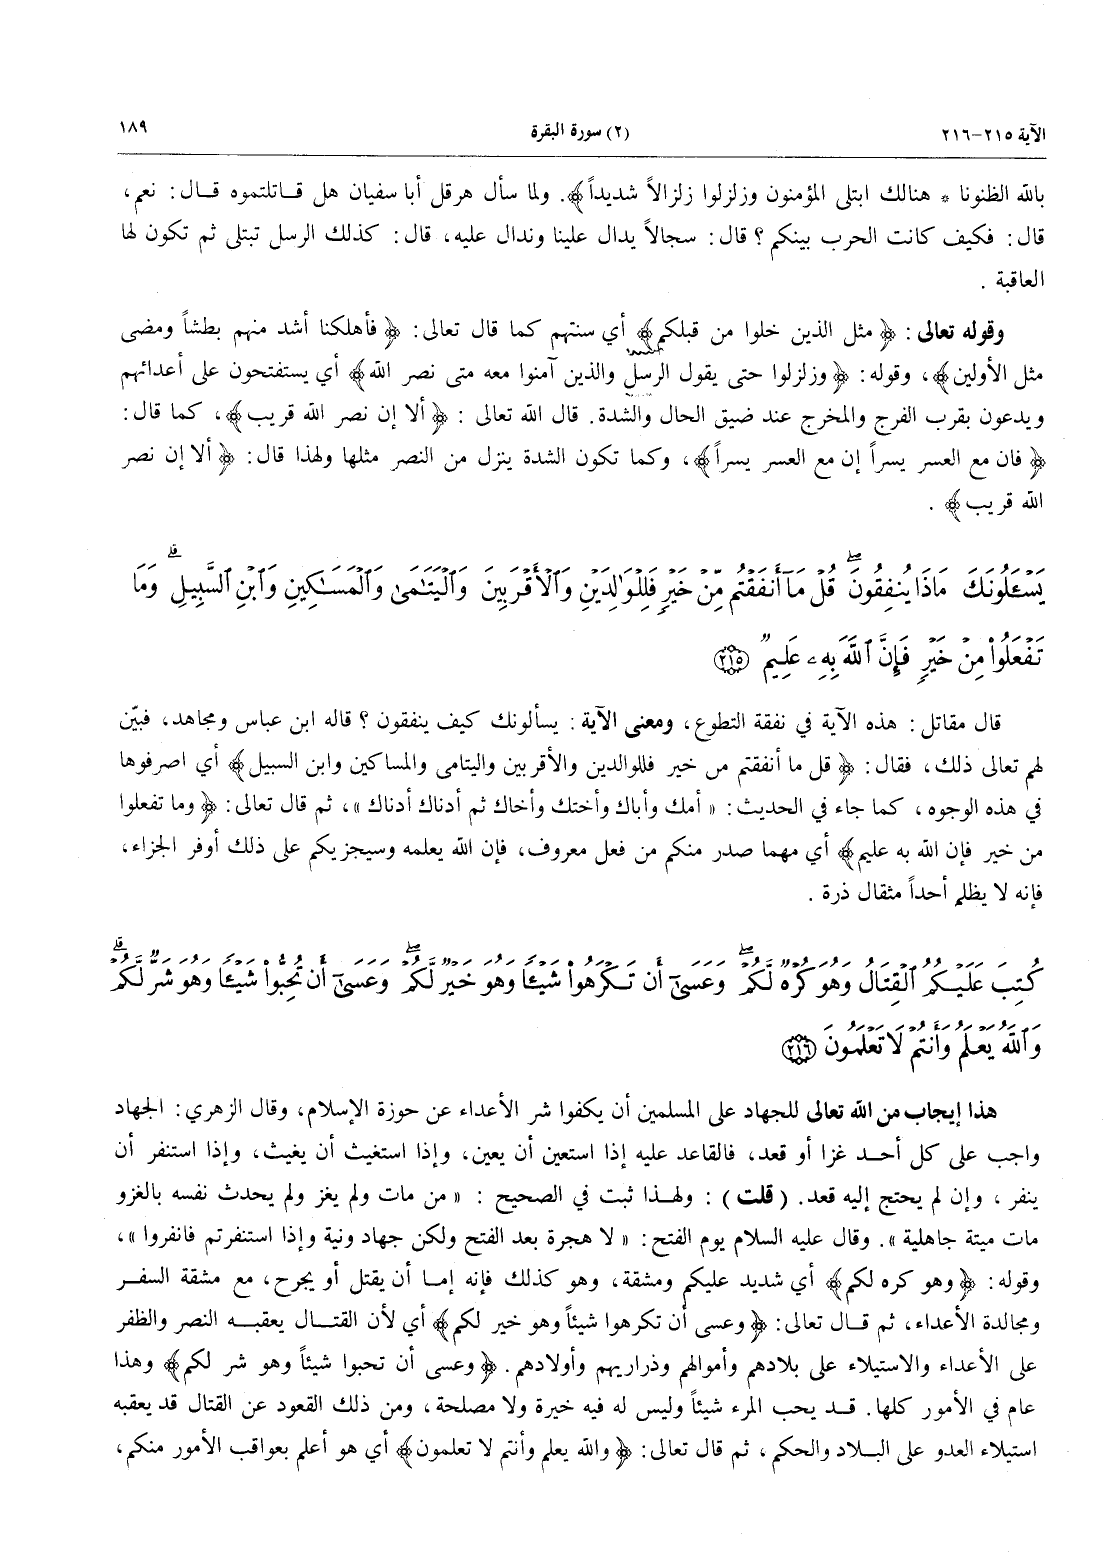 الآية ٢١٥-٢١٦ (٢) سورة البقرة ١٨٩
بالله الظنونا * هنالك ابتلى المؤمنون وزلزلوا زلزالاً شديداً﴾. ولما سأل هرقل أبا سفيان هل قاتلتموه قال: نعم،
قال: فكيف كانت الحرب بينكم؟ قال: سجالاً يدال علينا وندال عليه، قال: كذلك الرسل تبتلى ثم تكون لها
العاقبة .
وقوله تعالى: ﴿ مثل الذين خلوا من قبلكم﴾ أي سنتهم كما قال تعالى: ﴿ فأهلكنا أشد منهم بطشاً ومضى
مثل الأولين﴾، وقوله: ﴿ وزلزلوا حتى يقول الرسل والذين آمنوا معه متى نصر الله﴾ أي يستفتحون على أعدائهم
ويدعون بقرب الفرج والمخرج عند ضيق الحال والشدة. قال الله تعالى : ﴿ ألا إن نصر الله قريب﴾، كما قال:
﴿ فان مع العسر يسراً إن مع العسر يسراً﴾، وكما تكون الشدة ينزل من النصر مثلها ولهذا قال: ﴿ ألا إن نصر
الله قريب﴾ .
يَسْـَٔلُونَكَ مَاذَا يُنفِقُونَ ۖ قُلْ مَآ أَنفَقْتُم مِّنْ خَيْرٍ فَلِلْوَٰلِدَيْنِ وَٱلْأَقْرَبِينَ وَٱلْيَتَٰمَىٰ وَٱلْمَسَٰكِينِ وَٱبْنِ ٱلسَّبِيلِ ۗ وَمَا
تَفْعَلُوا۟ مِنْ خَيْرٍ فَإِنَّ ٱللَّهَ بِهِۦ عَلِيمٌ ﴿٢١٥﴾
قال مقاتل: هذه الآية في نفقة التطوع، ومعنى الآية: يسألونك كيف ينفقون؟ قاله ابن عباس ومجاهد، فبيّن
لهم تعالى ذلك، فقال: ﴿ قل ما أنفقتم من خير فللوالدين والأقربين واليتامى والمساكين وابن السبيل﴾ أي اصرفوها
في هذه الوجوه، كما جاء في الحديث: « أمك وأباك وأختك وأخاك ثم أدناك أدناك »، ثم قال تعالى: ﴿ وما تفعلوا
من خير فإن الله به عليم﴾ أي مهما صدر منكم من فعل معروف، فإن الله يعلمه وسيجزيكم على ذلك أوفر الجزاء،
فإنه لا يظلم أحداً مثقال ذرة .
كُتِبَ عَلَيْكُمُ ٱلْقِتَالُ وَهُوَ كُرْهٌ لَّكُمْ ۖ وَعَسَىٰٓ أَن تَكْرَهُوا۟ شَيْـًٔا وَهُوَ خَيْرٌ لَّكُمْ ۖ وَعَسَىٰٓ أَن تُحِبُّوا۟ شَيْـًٔا وَهُوَ شَرٌّ لَّكُمْ ۗ
وَٱللَّهُ يَعْلَمُ وَأَنتُمْ لَا تَعْلَمُونَ ﴿٢١٦﴾
هذا إيجاب من الله تعالى للجهاد على المسلمين أن يكفوا شر الأعداء عن حوزة الإسلام، وقال الزهري: الجهاد
واجب على كل أحد غزا أو قعد، فالقاعد عليه إذا استعين أن يعين، وإذا استغيث أن يغيث، وإذا استنفر أن
ينفر، وإن لم يحتج إليه قعد. ( قلت ) : ولهذا ثبت في الصحيح : « من مات ولم يغز ولم يحدث نفسه بالغزو
مات ميتة جاهلية ». وقال عليه السلام يوم الفتح: « لا هجرة بعد الفتح ولكن جهاد ونية وإذا استنفرتم فانفروا »،
وقوله: ﴿ وهو كره لكم﴾ أي شديد عليكم ومشقة، وهو كذلك فإنه إما أن يقتل أو يجرح، مع مشقة السفر
ومجالدة الأعداء، ثم قال تعالى: ﴿ وعسى أن تكرهوا شيئاً وهو خير لكم﴾ أي لأن القتال يعقبه النصر والظفر
على الأعداء والاستيلاء على بلادهم وأموالهم وذراريهم وأولادهم. ﴿ وعسى أن تحبوا شيئاً وهو شر لكم﴾ وهذا
عام في الأمور كلها. قد يحب المرء شيئاً وليس له فيه خيرة ولا مصلحة، ومن ذلك القعود عن القتال قد يعقبه
استيلاء العدو على البلاد والحكم، ثم قال تعالى: ﴿ والله يعلم وأنتم لا تعلمون﴾ أي هو أعلم بعواقب الأمور منكم،